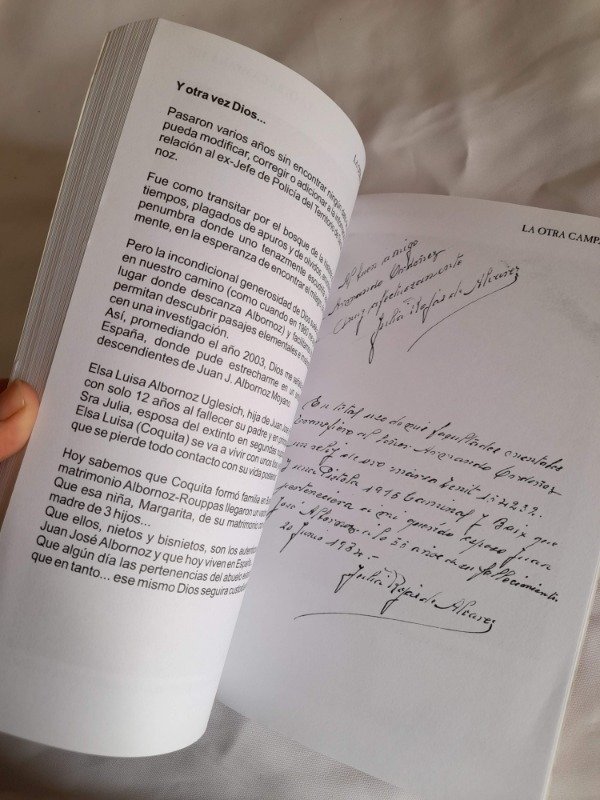 Y otra vez Dios...
Pasaron varios años sin encontrar ningún
pueda modificar, corregir o adicionar a la
relación al ex-Jefe de Policía del Territorio de
noz.
Fue como transitar por el bosque de la
tiempos, plagados de apuros y de olvidos,
penumbra donde uno tenazmente
mente, en la esperanza de encontrar el
Pero la incondicional generosidad de Dios
en nuestro camino (como cuando en
lugar donde descanza Albornoz) y
permitan descubrir pasajes elementales e
cen una investigación.
Así, promediando el año 2003, Dios me
España, donde pude estrecharme en un
descendientes de Juan J. Albornoz Moyano
Elsa Luisa Albornoz Uglesich, hija de Juan José
con solo 12 años al fallecer su padre y en
Sra Julia, esposa del extinto en segundas
Elsa Luisa (Coquita) se va a vivir con unos
que se pierde todo contacto con su vida
Hoy sabemos que Coquita formó familia en
matrimonio Albornoz-Rouppas llegaron
Que esa niña, Margarita, de su matrimonio
madre de 3 hijos...
Que ellos, nietos y bisnietos, son los
Juan José Albornoz y que hoy viven en España.
Que algún día las pertenencias del abuelo
que en tanto... ese mismo Dios seguira
LA OTRA CAMPA
Al buen amigo
Armando Ordóñez
muy afectuosamente
Julia Rojas de Alvarez
En total uso de mis facultades mentales
transfiero al señor Armando Ordóñez
un reloj de oro marca Zenit
y una Pistola 1916
pertenecieron a mi querido esposo Juan
José Albornoz a los 35 años de su fallecimiento
20 Junio 1984.-
Julia Rojas de Alvarez